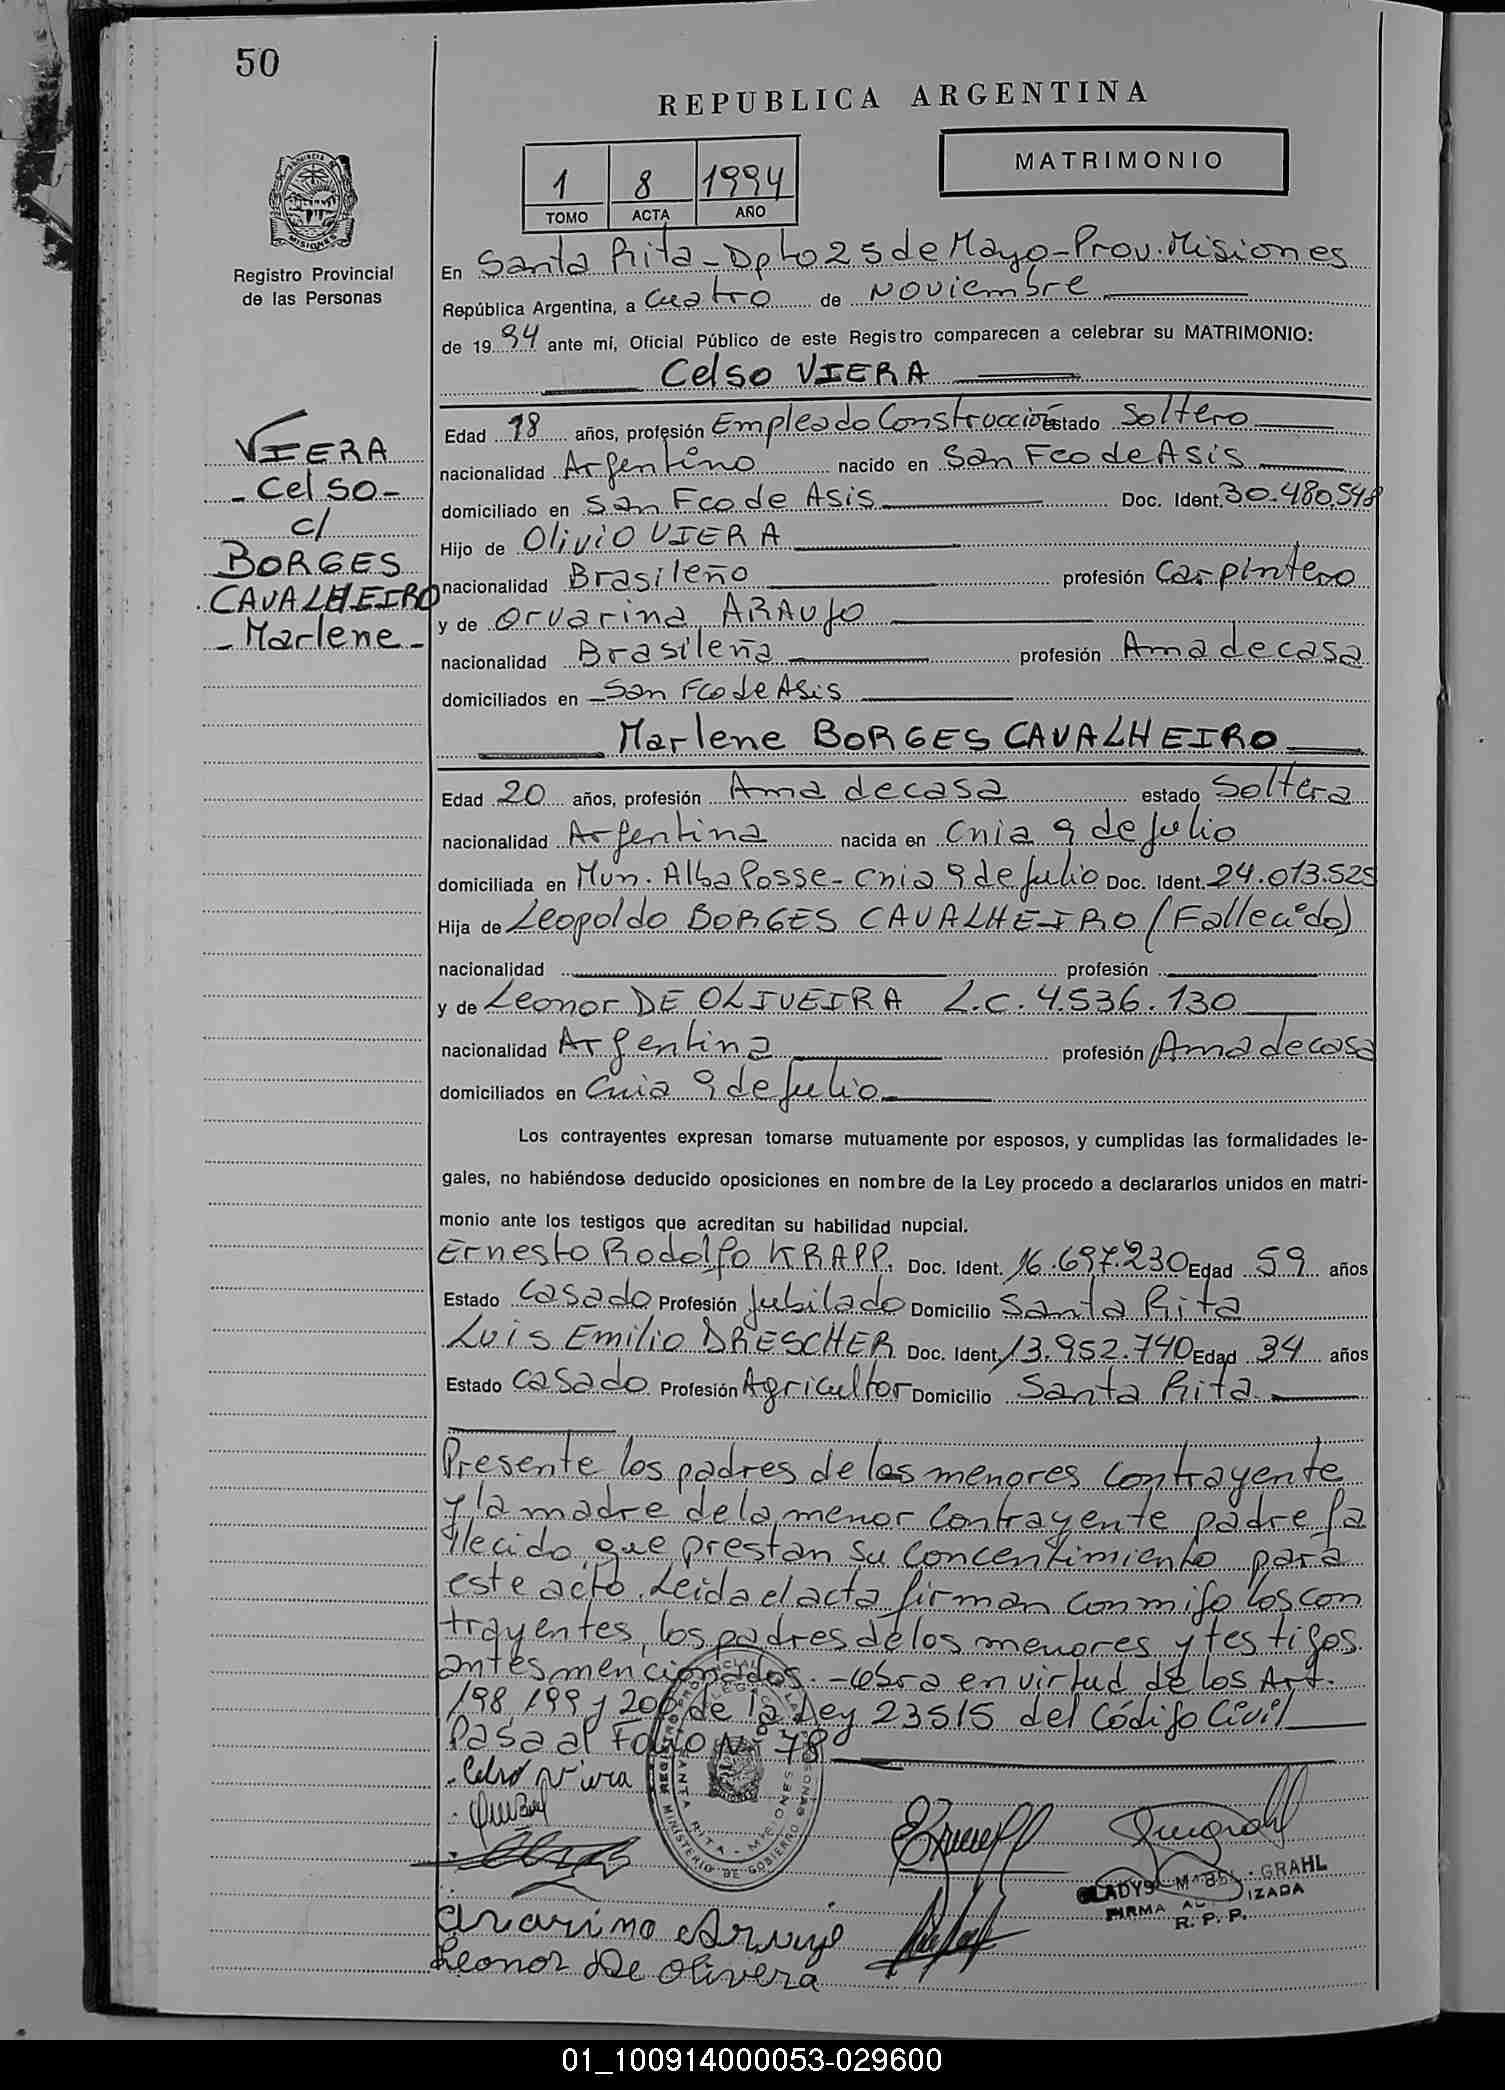 50
REPUBLICA ARGENTINA
MATRIMONIO
1 8 1994
TOMO ACTA AÑO
PROVINCIA
MISIONES
Registro Provincial
de las Personas
En Santa Rita - Dpto 25 de Mayo - Prov. Misiones
República Argentina, a Cuatro de Noviembre
de 19 94 ante mí, Oficial Público de este Registro comparecen a celebrar su MATRIMONIO:
Celso VIERA
VIERA
- Celso -
c/
BORGES
CAVALHEIRO
- Marlene -
Edad 18 años, profesión Empleado Construcción estado Soltero
nacionalidad Argentino nacido en San Fco de Asis
domiciliado en San Fco de Asis Doc. Ident. 30.480.548
Hijo de Olivio VIERA
nacionalidad Brasileño profesión Carpintero
y de Orvarina ARAUJO
nacionalidad Brasileña profesión Ama de casa
domiciliados en San Fco de Asis
Marlene BORGES CAVALHEIRO
Edad 20 años, profesión Ama de casa estado Soltera
nacionalidad Argentina nacida en Cnia 9 de Julio
domiciliada en Mun. Alba Posse - Cnia 9 de Julio Doc. Ident. 24.013.525
Hija de Leopoldo BORGES CAVALHEIRO (Fallecido)
nacionalidad profesión
y de Leonor DE OLIVEIRA L.C. 4.536.130
nacionalidad Argentina profesión Ama de casa
domiciliados en Cnia 9 de Julio
Los contrayentes expresan tomarse mutuamente por esposos, y cumplidas las formalidades le-
gales, no habiéndose deducido oposiciones en nombre de la Ley procedo a declararlos unidos en matri-
monio ante los testigos que acreditan su habilidad nupcial.
Ernesto Rodolfo KRAPP. Doc. Ident. 16.697.230 Edad 59 años
Estado Casado Profesión Jubilado Domicilio Santa Rita
Luis Emilio DRESCHER Doc. Ident. 13.952.740 Edad 34 años
Estado Casado Profesión Agricultor Domicilio Santa Rita
Presente los padres de los menores contrayente
y la madre de la menor contrayente padre fa
llecido, que prestan su concentimiento para
este acto. Leida el acta firman conmigo los con
trayentes, los padres de los menores y testigos
antes mencionados. - obra en virtud de los Art.
198, 199 y 200 de la Ley 23515 del Código Civil
Pasa al Folio Nº 78
Celso Viera
REGISTRO PROVINCIAL DE LAS PERSONAS
SANTA RITA - MISIONES
MINISTERIO DE GOBIERNO
GLADYS MABEL GRAHL
FIRMA AUTORIZADA
R. P. P.
Araujo
Leonor De Olivera
01_100914000053-029600